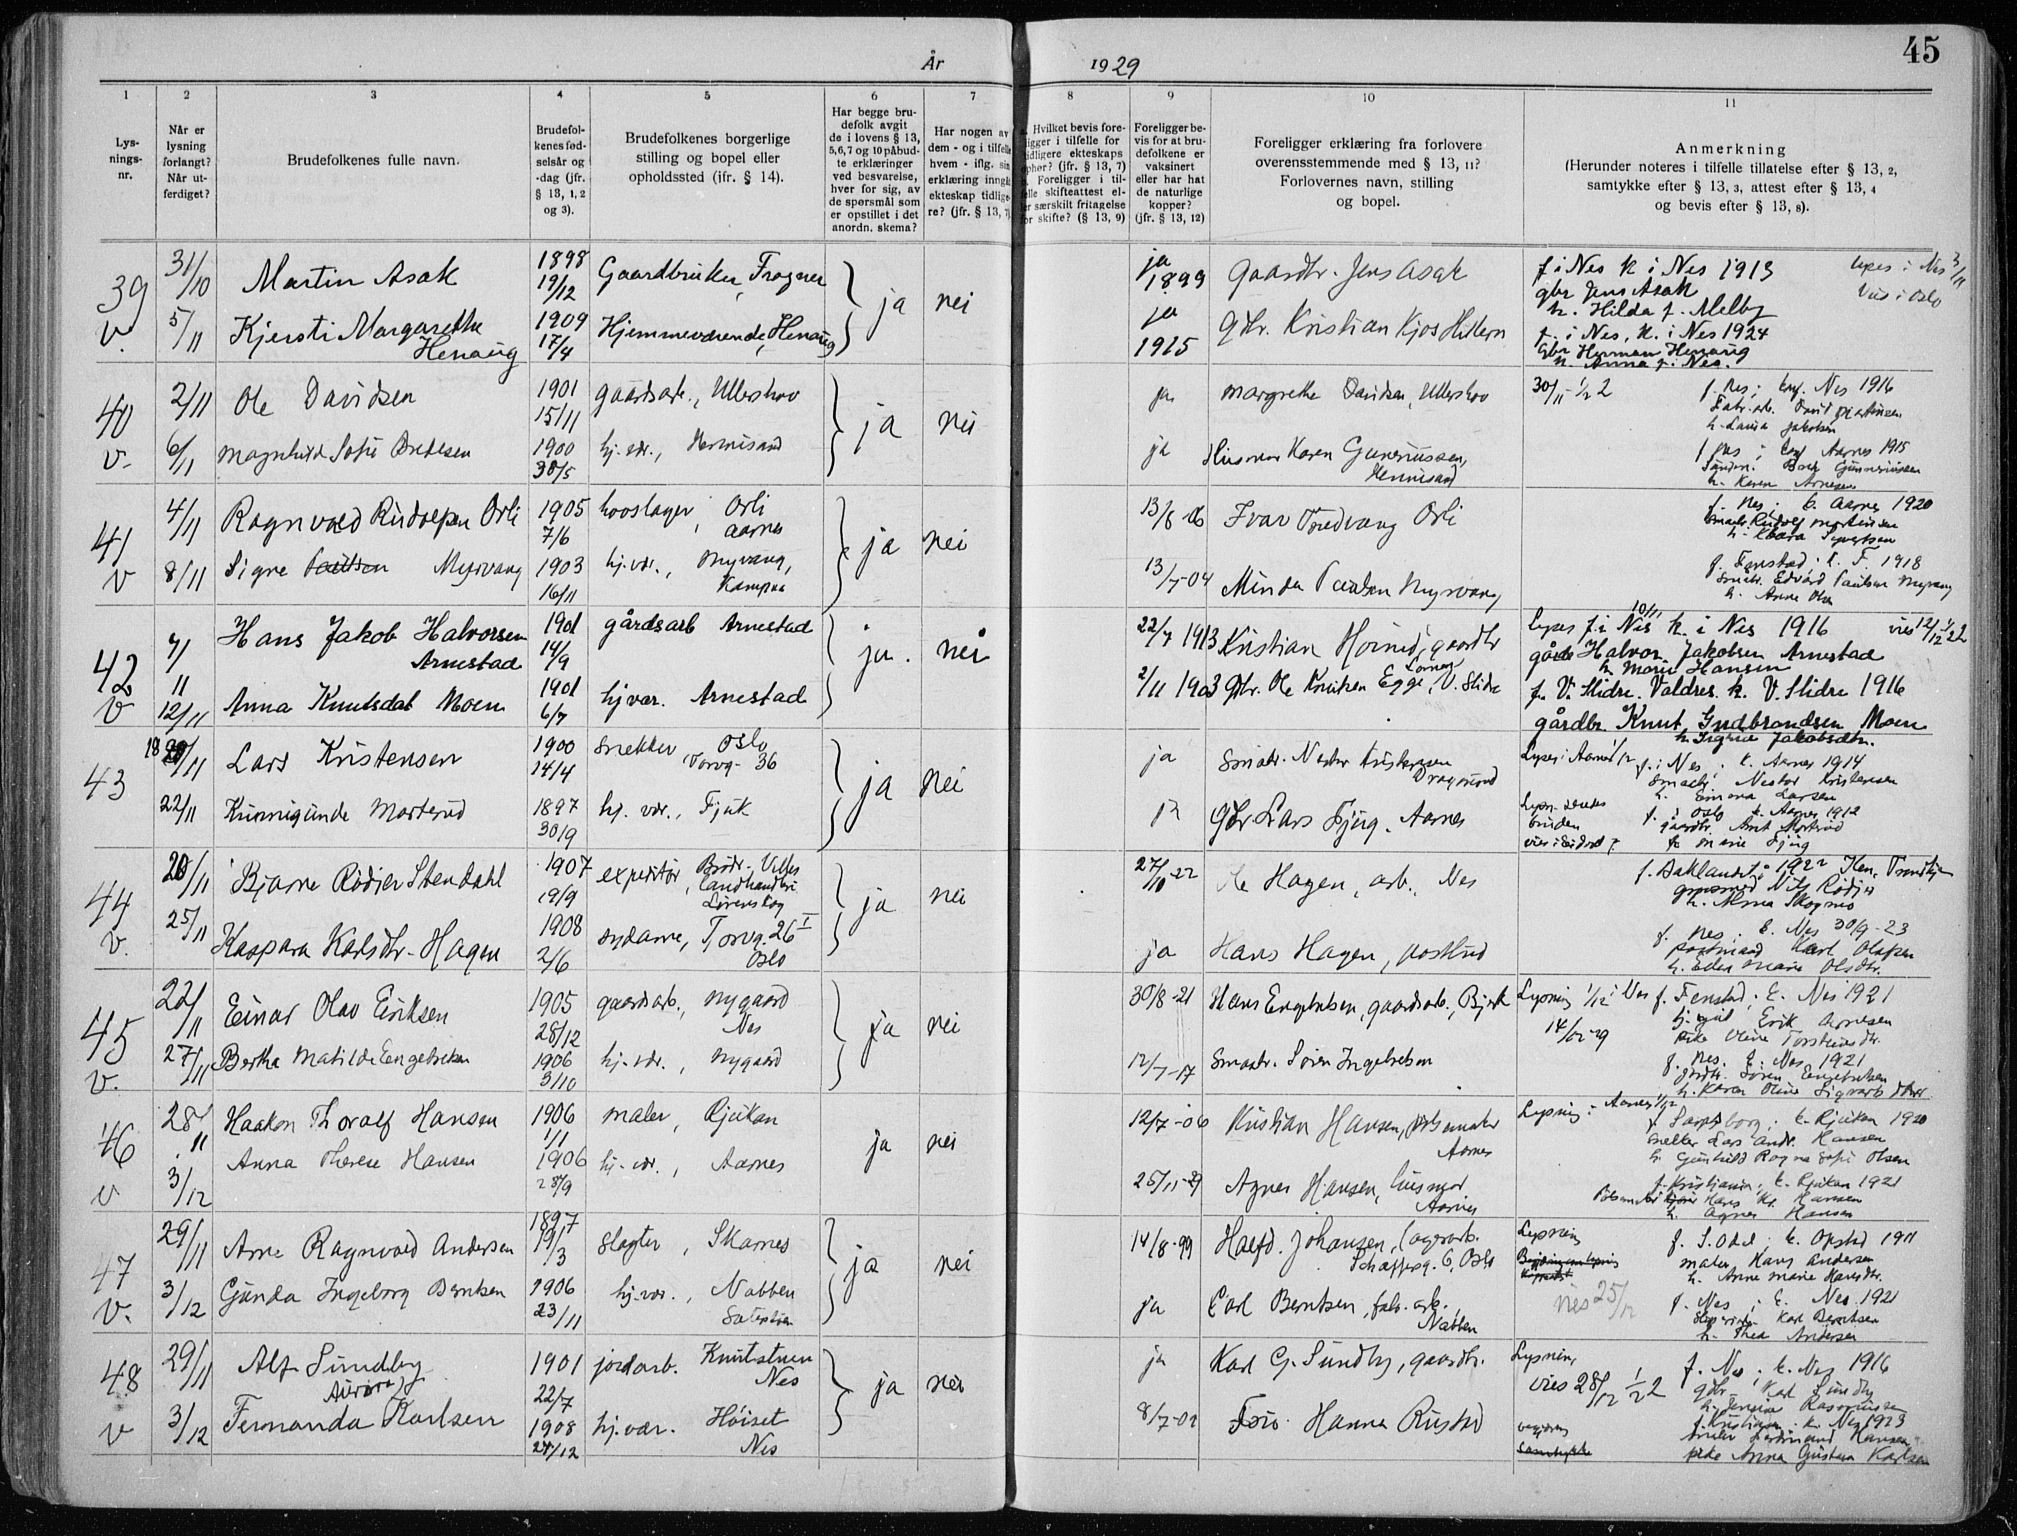 År 1929
45
1 2 3 4 5 6 7 8 9 10 11
Lys-
nings-
nr.
Når er
lysning
forlangt?
Når ut-
ferdiget?
Brudefolkenes fulle navn.
Brudefol-
kenes fød-
selsår og
-dag (jfr.
§ 13, 1, 2
og 3).
Brudefolkenes borgerlige
stilling og bopel eller
opholdssted (ifr. § 14).
Har begge bru-
defolk avgit
de i lovens § 13,
5,6,7 og 10 påbud-
te erklæringer
ved besvarelse,
hver for sig, av
de spørsmål som
er opstillet i det
anordn. skema?
Har nogen av
dem - og i tilfelle
hvem - iflg. sin
erklæring inngå
ekteskap tidlige-
re? (jfr. § 13, 7)
Hvilket bevis fore-
ligger i tilfelle for
tidligere ekteskaps
ophør? (jfr. § 13, 7)
Foreligger i til-
felle skifteattest el-
ler særskilt fritagelse
for skifte? (§ 13, 9)
Foreligger be-
vis for at bru-
defolkene er
vaksinert
eller har hat
de naturlige
kopper?
(jfr. § 13, 12)
Foreligger erklæring fra forlovere
overensstemmende med § 13, 11?
Forlovernes navn, stilling
og bopel.
Anmerkning
(Herunder noteres i tilfelle tillatelse efter § 13, 2,
samtykke efter § 13, 3, attest efter § 13, 4
og bevis efter § 13, 8).
39 v.
31/10 Martin Asak 1898 19/12 Gaardbruker, Frogner ja nei ja 1899 Gaardbr. Jens Asak
f i Nes k i Nes 1913
gbr Jens Asak
h. Hilda f. Melby
Lyses i Nes 3/11
Vies i Oslo
5/11 Kjersti Margarethe Henaug 1909 17/4 Hjemmeværende, Henaug ja 1915 Gbr. Kristian Kjos Hillern
f. i Nes, k. i Nes 1924
Gbr Herman Henaug
h. Anna f. i Nes.
40 v.
2/11 Ole Davidsen 1901 15/11 gaardsarb., Ullershov ja nei ja Margrethe Davidsen, Ullershov
30/11 - 1/2 2
f. Nes; konf. Nes 1916
h. Laura Jakobsen
6/11 Magnhild Sofie 1900 30/5 hj. vær., Hennisand ja Husmor Karen Gunneriussen, Hennisand
f. Nes; konf Aarnes 1915
h. Karen Arnesen
41 v
4/11 Ragnvald Rudolfsen Orli 1905 7/6 hovslager, Orli, Aarnes ja nei 13/8 06 Ivar Tredvang Orli
f. Nes; k. Aarnes 1920
Smabr. Rudolf Martinsen
h. Klara Sivertsen
8/11 Signe Paulsen Myrvang 1903 16/11 hj. vær., Myrvang, Kampaa 13/7-04 Minda Paulsen Myrvang
f. Fenstad; k. F. 1918
Smabr. Edvard Paulsen Myrvang
h. Anne Olsen
42 v
7/11 Hans Jakob Halvorsen Arnestad 1901 14/9 gårdsarb Arnestad ja. nei 22/7 1913 Kristian Horned, gaardbr
Lyses 10/11 f i Nes k. i Nes 1916 vies 12/12 1/2 2
gårdb Halvor Jakobsen Arnestad
h. Marie Hansen
12/11 Anna Knutsdat Moen 1901 6/7 hjvær. Arnestad 2/11 1903 Gbr. Ole Knutsen Egge, V. Slidre
f. V. Slidre. Valdres. k. V. Slidre 1916
gårdbr. Knut Gudbrandsen Moen
h. Sigrid Jakobsdtr.
43
Lars Kristensen 1900 14/4 Snekker Oslo, Torvg. 36 ja nei ja Smabr. Nestor Kristensen Dragmoed
Lyses i Aarnes 1/12
f. i Nes; k. Aarnes 1914
Smabr Nestor Kristensen
h. Larsen
22/11 Kunnigunde Marterud 1897 30/9 hj. vær., Fjuk ja Gbr. Lars Fjug, Aarnes
bruden
f. i Oslo k. Aarnes 1912
h. Marie Fjug
44 v.
20/11 Bjarne Rødier Stendahl 1907 19/9 expeditør, Brødr. Landhandleri Lørenskog ja nei 27/10-22 Ole Hagen, arb. Nes
f. 1922
Nils Rødier
h. Anna Skogmo
25/11 Kaspara Karlsdtr. Hagen 1908 2/6 sydame, Torvg. 26 I Oslo ja Hans Hagen, postbud
f. Nes. k. Nes 30/9-23
postmand Karl Olafsen
h. Eden Marie Olsdtr.
45 v.
22/11 Einar Olav Eriksen 1905 28/12 gaardsarb., Nygaard Nes ja nei 30/8-21 Hans Engebretsen, gaardsarb., Bjerk
Lysning 1/12 i Nes 14/12-29
f. Fenstad; k. Nes 1921
Erik Arnesen
27/11 Bertha Matilde Engebretsen 1906 3/10 hj. vær., Nygaard 12/7-17 Smaabr. Søren Ingebretsen
f. Nes. k. Nes 1921
Søren Engebretsen
h. Karen Oline
46 v
28/11 Haakon Thoralf Hansen 1906 1/1 maler, Rjukan ja nei 12/7-06 Kristian Hansen, Aarnes
Lysning i Aarnes 1/12
f. Sarpsborg; k. Rjukan 1920
Lars Andr. Hansen
h. Gunhild Ragna Sofie Olsen
3/12 Anna Therese Hansen 1906 28/9 hj. vær., Aarnes 25/11-29 Agnes Hansen, husmor Aarnes
f. Kristiania; k. Rjukan 1921
Hans Kr. Hansen
h. Agnes Hansen
47 v.
29/11 Arne Ragnvald Andersen 1897 19/3 slagter, Skarnes ja nei 14/8-99 Halfd. Johansen, lagerarb. Schæffersg. 6, Oslo
Lysning
f. S. Odal; k. Opstad 1911
maler Hans Andersen
h. Anne Marie Hansdtr.
3/12 Gunda Ingeborg Berntsen 1906 23/11 hj. vær., Nabben ja Carl Berntsen, fabr. arb. Nabben
vies 25/12
f. Nes; k. Nes. 1921
Karl Berntsen
h. Thea Andersen
48 v
29/11 Alf Sundby 1901 22/7 jordarb. Knutstuen Nes ja nei ja Karl G. Sundby, gaardbr.
Lysning,
vies 28/12 1/2 2
f. Nes; k. Nes 1916
gbr. Karl Sundby
3/12 Fernanda Aurora Karlsen 1908 27/12 hj. vær. Høiset Nes 8/7-02 Hanna Rustad
f. Kristiania. k. Nes 1923
Ferdinand Hansen
pike Anna Gustava Karlsen